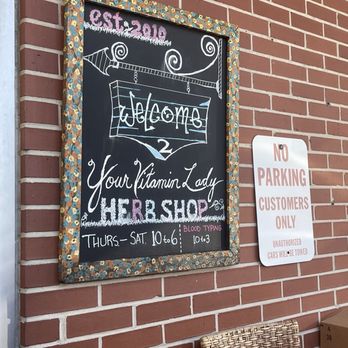 est. 2010
Welcome
2
Your Vitamin Lady
HERB SHOP
THURS - SAT. 10 to 6
BLOOD TYPING
10 to 3
NO
PARKING
CUSTOMERS
ONLY
UNAUTHORIZED
CARS WILL BE TOWED